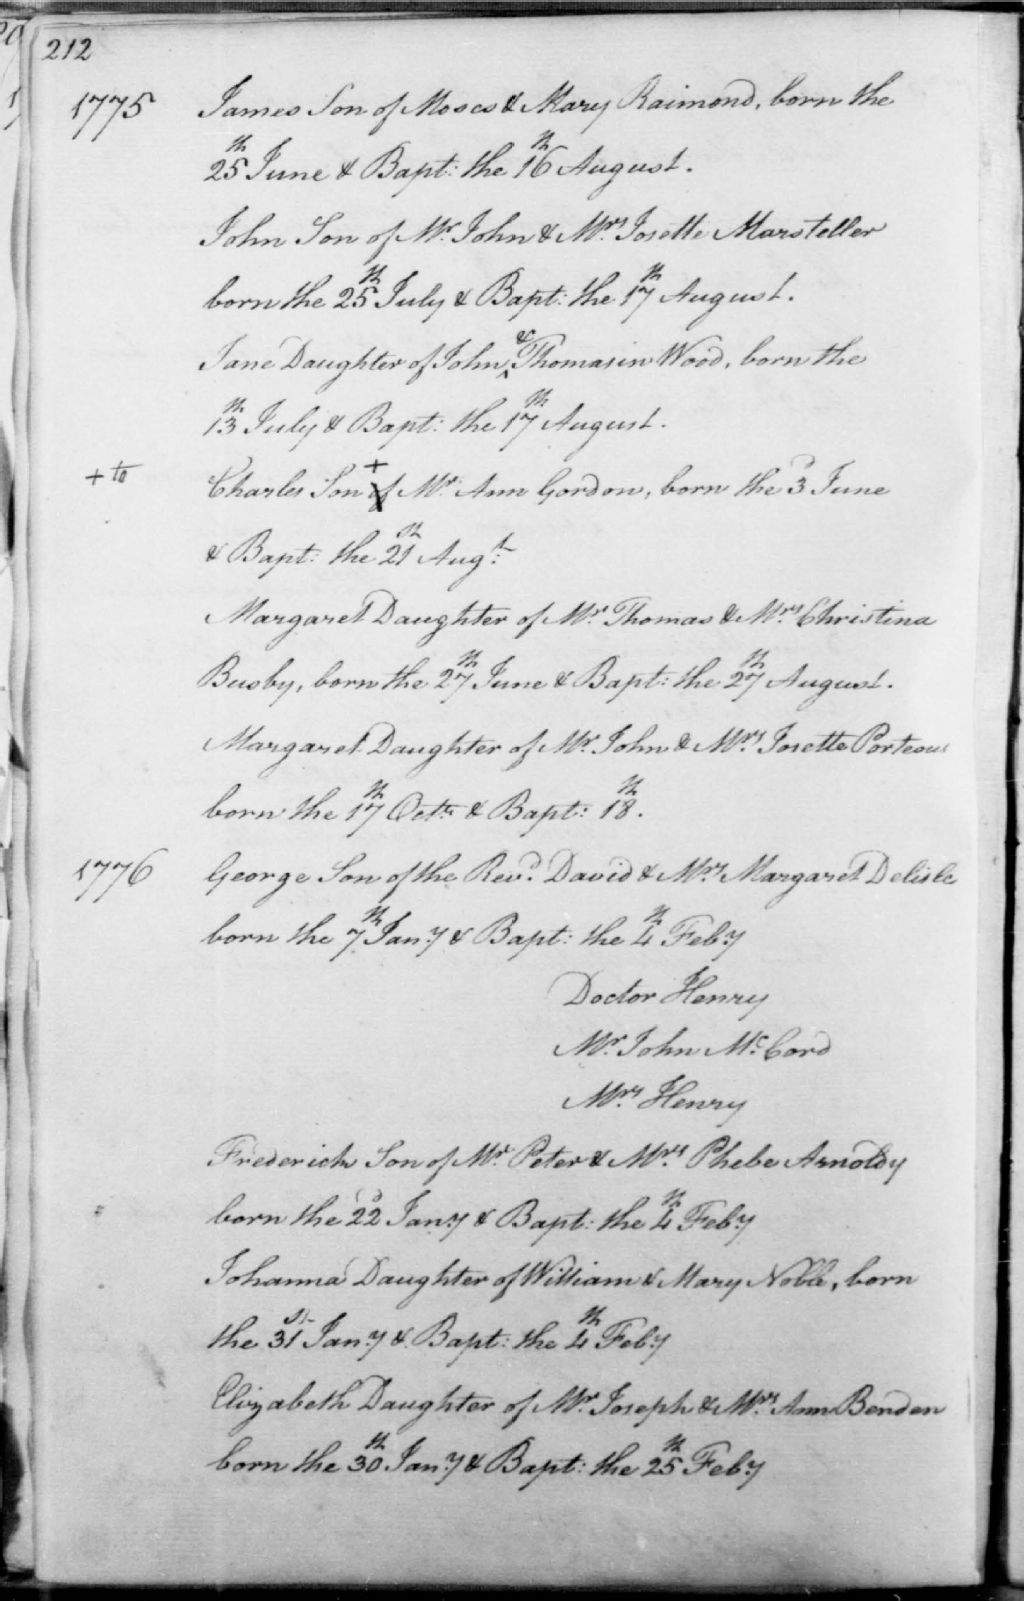 212
1775 James Son of Moses & Mary Raimond, born the
25th June & Bapt: the 16th August.
John Son of Mr. John & Mrs. Josette Marsteller
born the 25th July & Bapt: the 17th August.
Jane Daughter of John & Thomasin Wood, born the
13th July & Bapt: the 17th August.
+ to Charles Son + of Mr. Ann Gordon, born the 3d June
& Bapt: the 21st Augt:
Margaret Daughter of Mr. Thomas & Mrs. Christina
Busby, born the 27th June & Bapt: the 27th August.
Margaret Daughter of Mr. John & Mrs. Josette Porteous
born the 17th Octr: & Bapt: 18th.
1776 George Son of the Revd. David & Mrs. Margaret Delisle
born the 7th Jan:y & Bapt: the 4th Feb:y
Doctor Henry
Mr. John Mc.Cord
Mrs. Henry
Frederick Son of Mr. Peter & Mrs. Phebe Arnoldy
born the 22d Jan:y & Bapt: the 4th Feb:y
Johanna Daughter of William & Mary Noble, born
the 31st Jan:y & Bapt: the 4th Feb:y
Elizabeth Daughter of Mr. Joseph & Mrs. Ann Benden
born the 30th Jan:y & Bapt: the 25th Feb:y